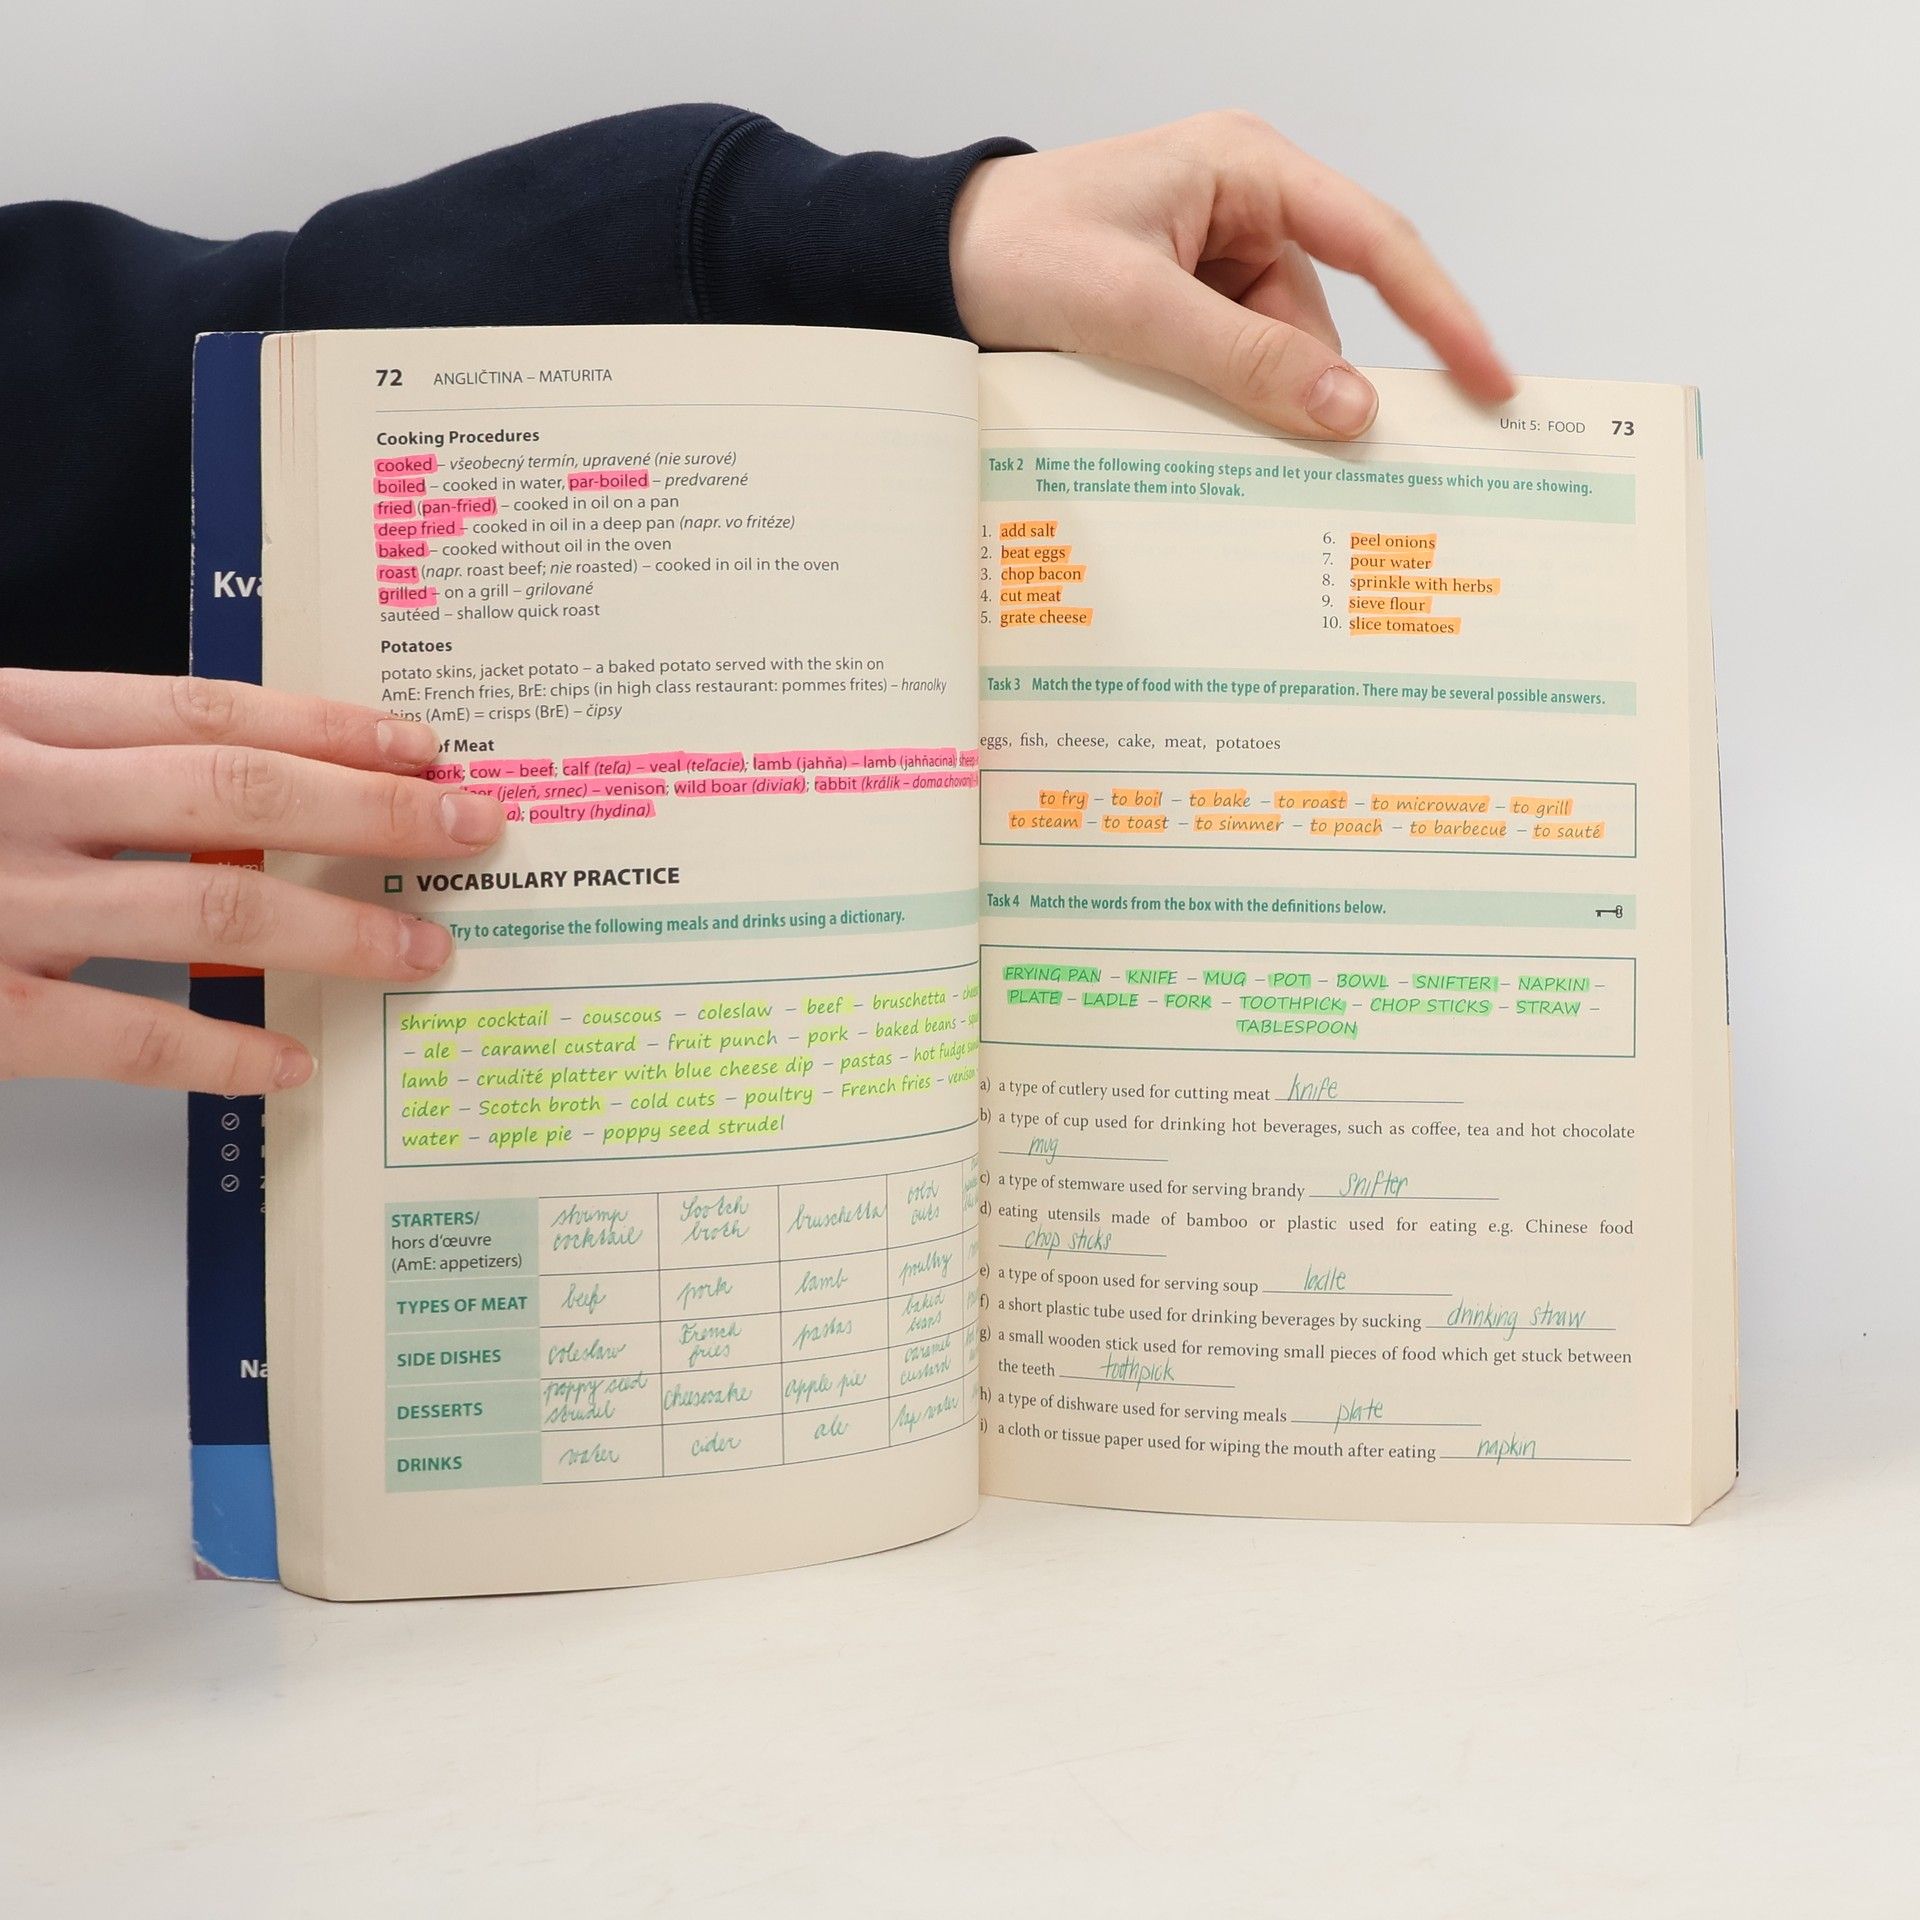 72 ANGLIČTINA – MATURITA
Cooking Procedures
cooked – všeobecný termín, upravené (nie surové)
boiled – cooked in water, par-boiled – predvarené
fried (pan-fried) – cooked in oil on a pan
deep fried – cooked in oil in a deep pan (napr. vo fritéze)
baked – cooked without oil in the oven
roast (napr. roast beef; nie roasted) – cooked in oil in the oven
grilled – on a grill – grilované
sautéed – shallow quick roast
Potatoes
potato skins, jacket potato – a baked potato served with the skin on
AmE: French fries, BrE: chips (in high class restaurant: pommes frites) – hranolky
(AmE) = crisps (BrE) – čipsy
of Meat
– pork; cow – beef; calf (teľa) – veal (teľacie); lamb (jahňa) – lamb (jahňacina)
(jeleň, srnec) – venison; wild boar (diviak); rabbit (králik – doma chovaný
poultry (hydina)
VOCABULARY PRACTICE
Try to categorise the following meals and drinks using a dictionary.
shrimp cocktail – couscous – coleslaw – beef – bruschetta –
– ale – caramel custard – fruit punch – pork – baked beans –
lamb – crudité platter with blue cheese dip – pastas – hot fudge
cider – Scotch broth – cold cuts – poultry – French fries – venison
water – apple pie – poppy seed strudel
STARTERS/
hors d'œuvre
(AmE: appetizers)
shrimp cocktail
Scotch broth
bruschetta
cold cuts
TYPES OF MEAT
beef
pork
lamb
poultry
SIDE DISHES
coleslaw
French fries
pastas
baked beans
DESSERTS
poppy seed strudel
cheesecake
apple pie
caramel custard
DRINKS
water
cider
ale
tap water
Unit 5: FOOD 73
Task 2 Mime the following cooking steps and let your classmates guess which you are showing.
Then, translate them into Slovak.
1. add salt
2. beat eggs
3. chop bacon
4. cut meat
5. grate cheese
6. peel onions
7. pour water
8. sprinkle with herbs
9. sieve flour
10. slice tomatoes
Task 3 Match the type of food with the type of preparation. There may be several possible answers.
eggs, fish, cheese, cake, meat, potatoes
to fry – to boil – to bake – to roast – to microwave – to grill
to steam – to toast – to simmer – to poach – to barbecue – to sauté
Task 4 Match the words from the box with the definitions below.
FRYING PAN – KNIFE – MUG – POT – BOWL – SNIFTER – NAPKIN –
PLATE – LADLE – FORK – TOOTHPICK – CHOP STICKS – STRAW –
TABLESPOON
a) a type of cutlery used for cutting meat knife
b) a type of cup used for drinking hot beverages, such as coffee, tea and hot chocolate
mug
c) a type of stemware used for serving brandy snifter
d) eating utensils made of bamboo or plastic used for eating e.g. Chinese food
chop sticks
e) a type of spoon used for serving soup ladle
f) a short plastic tube used for drinking beverages by sucking drinking straw
g) a small wooden stick used for removing small pieces of food which get stuck between
the teeth toothpick
h) a type of dishware used for serving meals plate
i) a cloth or tissue paper used for wiping the mouth after eating napkin